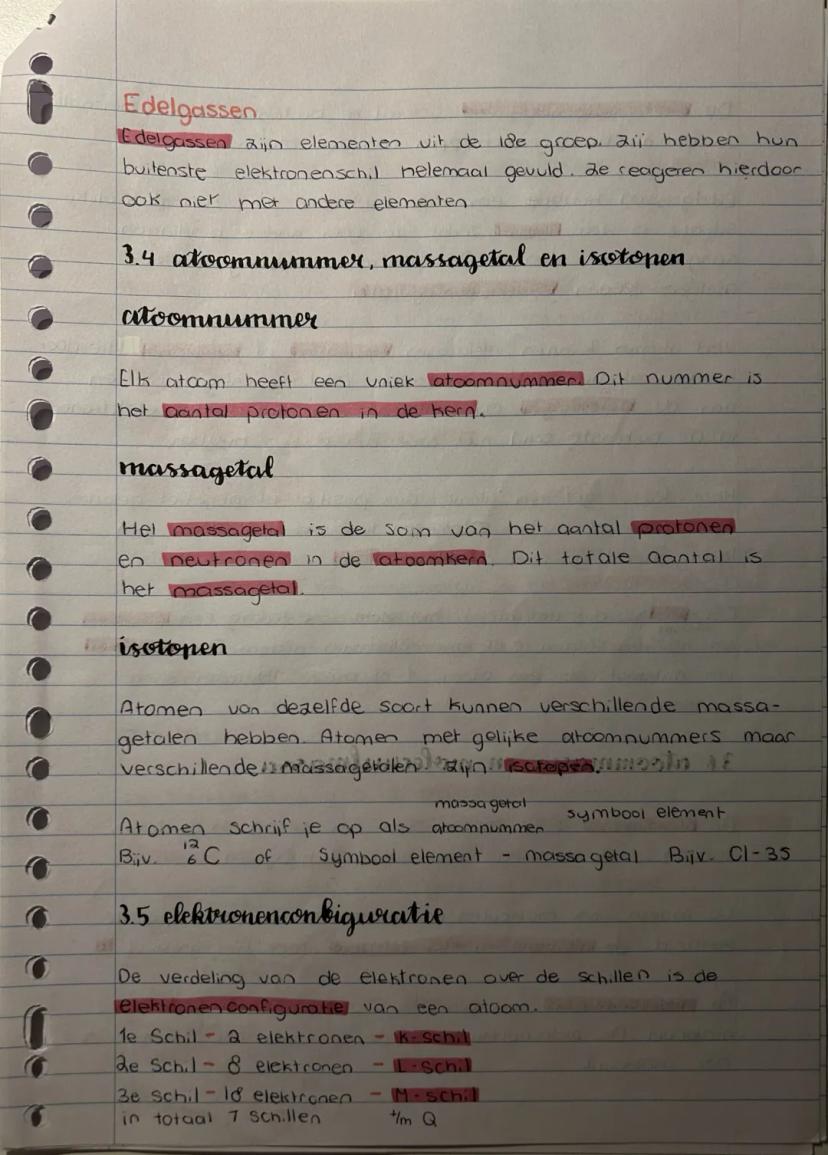 Edelgassen
Edelgassen zijn elementen uit de 18e groep. Zij hebben hun
buitenste elektronenschil helemaal gevuld. Ze reageren hierdoor
ook niet met andere elementen
3.4 atoomnummer, massagetal en isotopen
atoomnummer
Elk atoom heeft een uniek atoomnummer. Dit nummer is
het aantal protonen in de kern.
massagetal
Het massagetal is de som van het aantal protonen
en neutronen in de atoomkern. Dit totale aantal is
het massagetal.
isotopen
Atomen van dezelfde soort kunnen verschillende massa-
getalen hebben. Atomen met gelijke atoomnummers maar
verschillende massagetalen zijn isotopen.
massagetal symbool element
Atomen schrijf je op als atoomnummer
Bijv. ¹²₆C of Symbool element - massagetal Bijv. Cl-35
3.5 elektronenconfiguratie
De verdeling van de elektronen over de schillen is de
elektronenconfiguratie van een atoom.
1e Schil - 2 elektronen - K-schil
2e Schil - 8 elektronen - L-schil
3e Schil - 18 elektronen - M-schil
in totaal 7 schillen t/m Q